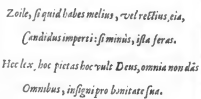 Zoile, si quid habes melius, vel rectius, eia,
Candidus imperti: si minùs, ista feras.
Hec lex, hoc pietas hoc vult Deus, omnia non dãs
Omnibus, insigni pro bonitate sua.